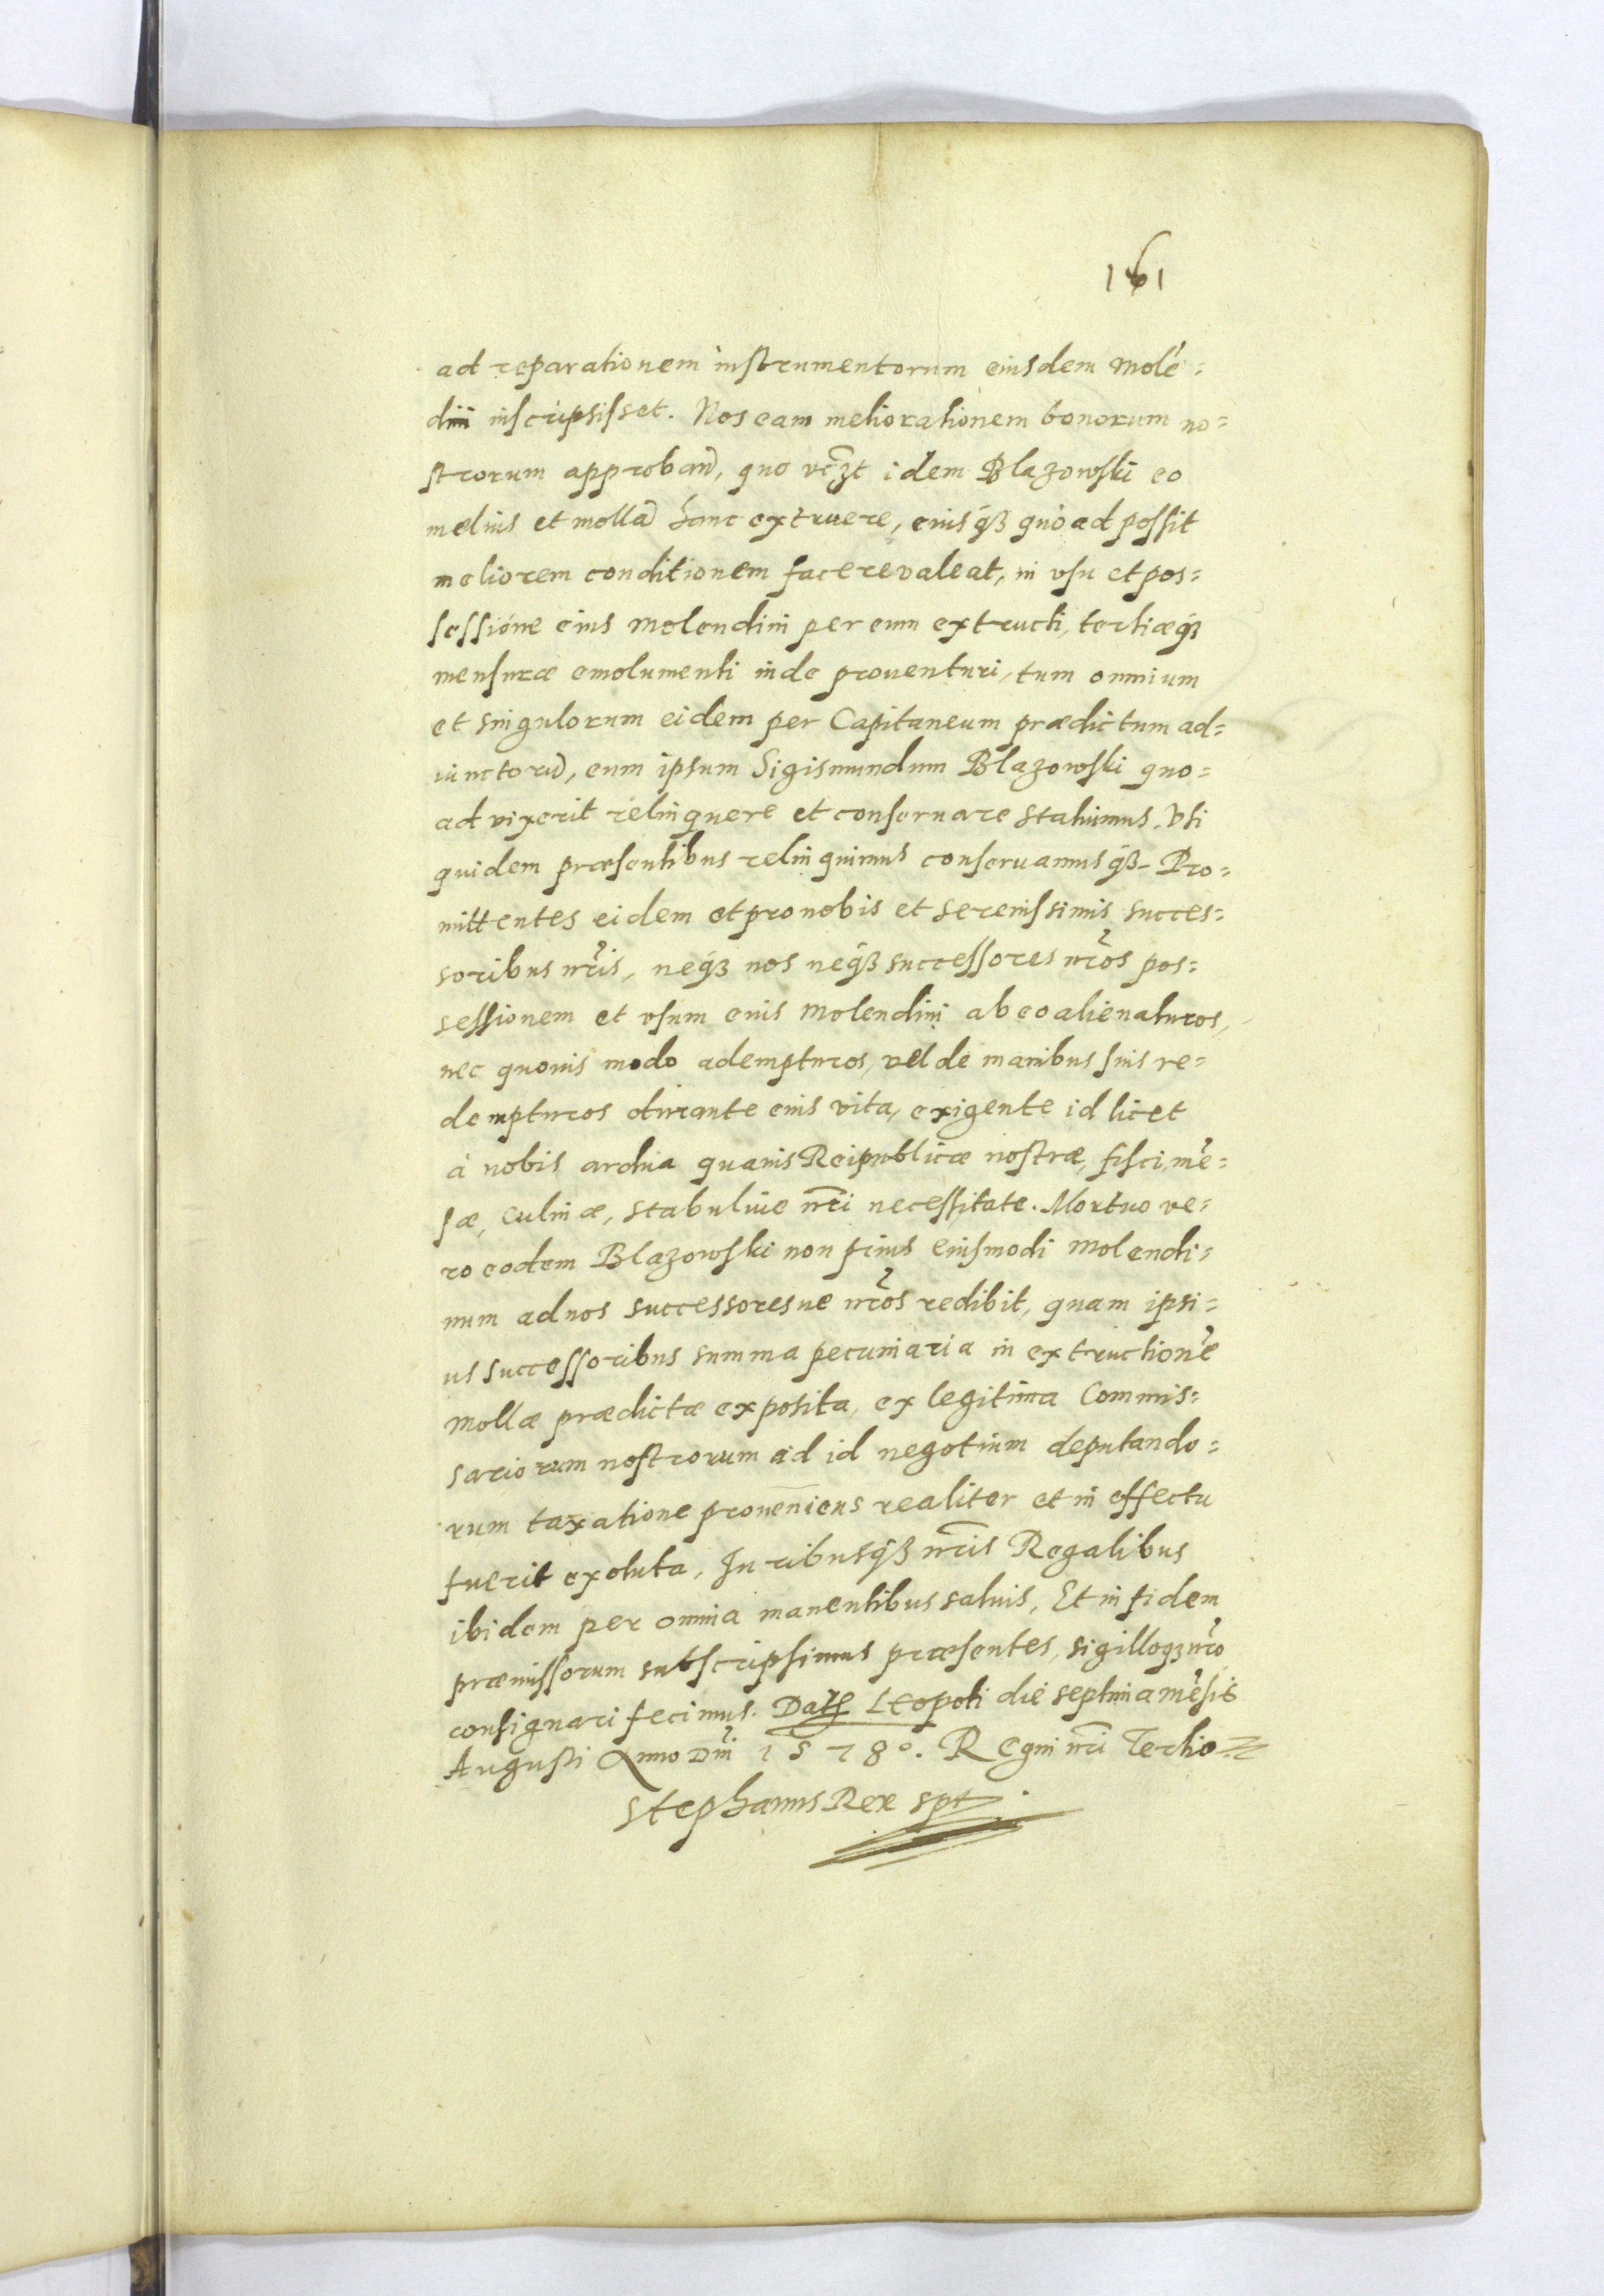 161
ad reparationem instrumentorum eiusdem Molē=
dini inscripsisset. Nos eam meliorationem bonorum no=
strorum approban̄, quo vcz̄t idem Blazowski eo
melius et mollā hanc extruere, eiusq́ʒ quoad possit
meliorem conditionem facere valeat, in vsu et pos=
sessione eius Molendini per eum extructi, tertiæq́ʒ
mensuræ emolumenti inde prouenturi, tum omnium
et singulorum eidem per Capitaneum prædictum ad=
iunctorū, eum ipsum Sigismundum Blazowski quo=
ad vixerit relinquere et conseruare statuimus. Vti
quidem præsentibus relinquimus conseruamusq́ʒ. Pro=
mittentes eidem et pro nobis et serenissimis succes=
soribus nr̄is, neq́ʒ nos neq́ʒ successores nr̄os pos=
sessionem et vsum eius Molendini ab eo alienaturos,
nec quouis modo adempturos, vel de manibus suis re=
dempturos durante eius vita, exigente id licet
à nobis ardua quauis Reipublicæ nostræ, fisci, mē=
sæ, culinæ, stabuliue nr̄i necessitate. Mortuo ve=
ro eodem Blazowski non prius eiusmodi Molendi=
num ad nos successoresue nr̄os redibit, quam ipsi=
us successoribus summa pecuniaria in extructionē
Mollæ prædictæ exposita, ex legitima Commis=
sariorum nostrorum ad id negotium deputando=
rum taxatione proueniens realiter et in effectu
fuerit exoluta, Iuribusq́ʒ nr̄is Regalibus
ibidem per omnia manentibus saluis, Et in fidem
præmissorum subscripsimus præsentes, sigilloqʒ nr̄o
consignari fecimus. Dat̄ Leopoli die septima mēsis
Augusti Anno Dn̄i 1578°. Regni nr̄i Tertio
Stephanus Rex spt